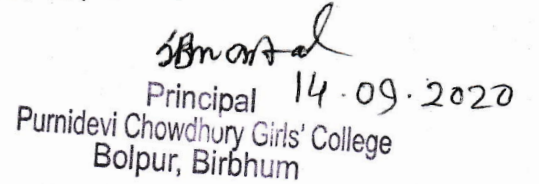 Principal 14.09.2020
Purnidevi Chowdhury Girls' College
Bolpur, Birbhum